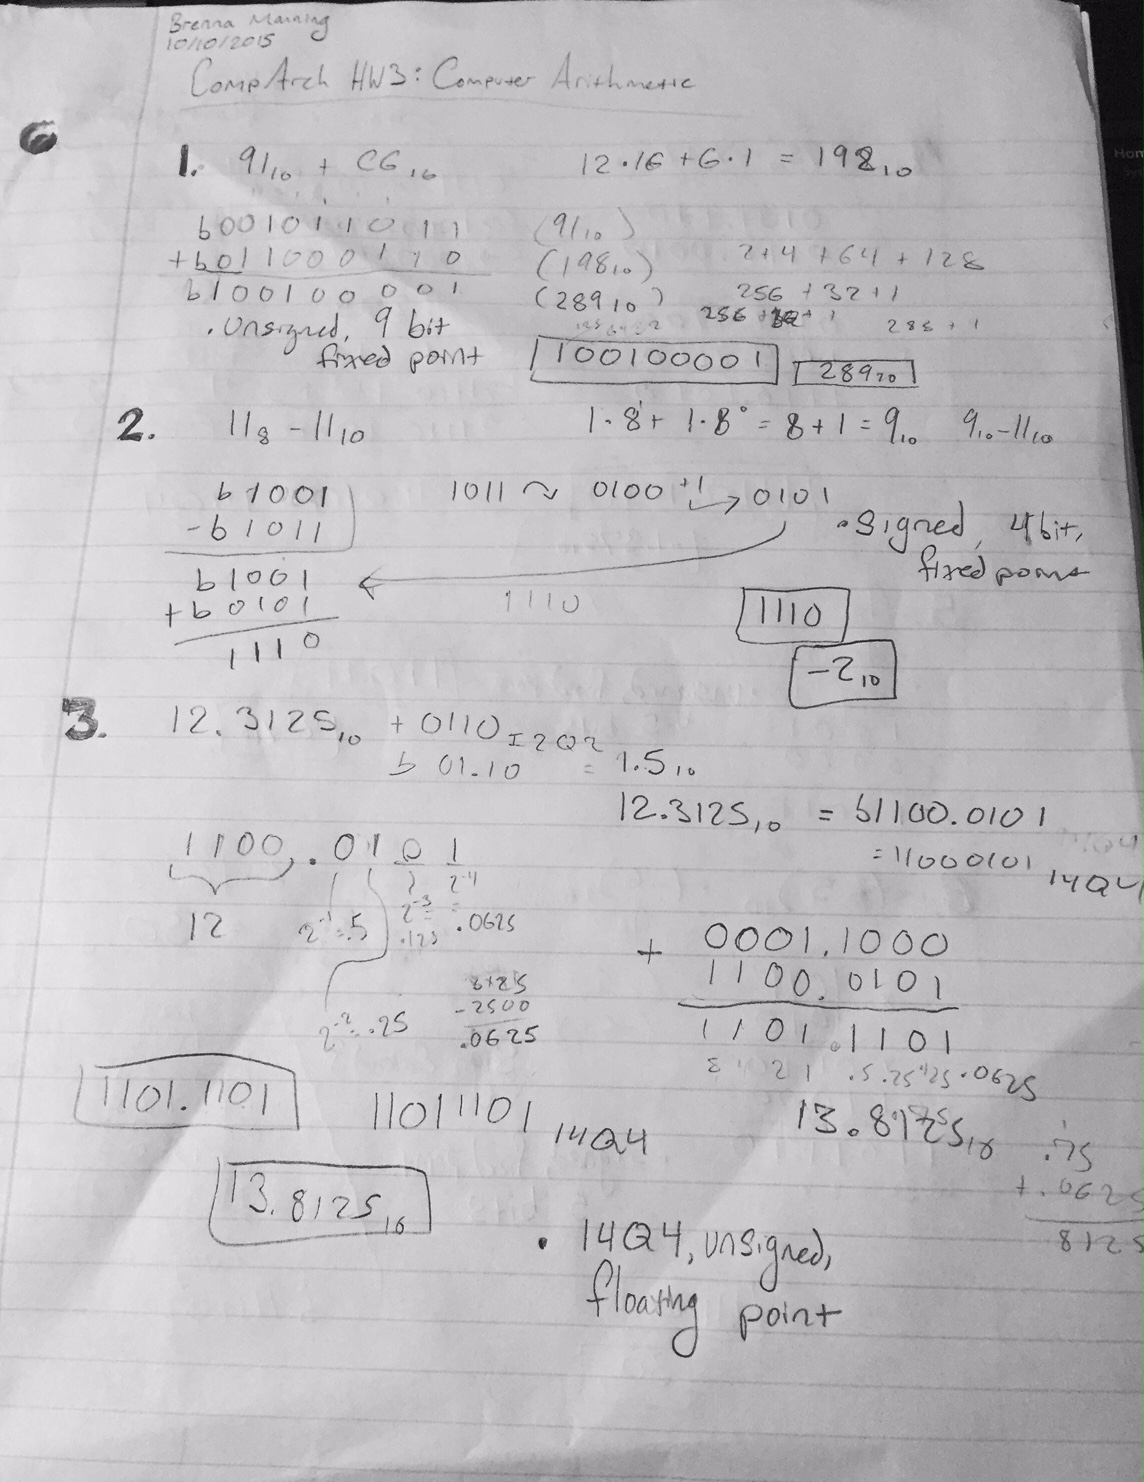 Brenna Manning
10/10/2015
CompArch HW3: Computer Arithmetic
1. 91₁₀ + C6₁₆ 12·16 + 6·1 = 198₁₀
b001011011 (91₁₀)
+b011000110 (198₁₀) 2+4+64+128
b100100001 (289₁₀) 256 + 32 + 1
256 + 32 + 1 288 + 1
• Unsigned, 9 bit
fixed point 100100001 289₁₀
2. 11₈ - 11₁₀ 1·8¹ + 1·8⁰ = 8+1 = 9₁₀ 9₁₀-11₁₀
b1001 1011 0100 +1 0101
-b1011 • Signed, 4 bit,
fixed point
b1001
+b0101 1110 1110
1110 -2₁₀
3. 12.3125₁₀ + 0110 I2Q2
b 01.10 = 1.5₁₀
12.3125₁₀ = b1100.0101
= 11000101 I4Q4
1100.0101
2⁻⁴
12 2⁻¹=.5 2⁻³= .125 .0625
+ 0001.1000
1100.0101
1101.1101
2⁻²=.25
8125
-2500
.0625
8 4 2 1 .5 .25 .125 .0625
1101.1101 11011101 I4Q4 13.8125₁₀
.75
+.0625
8125
13.8125₁₀
• I4Q4, unsigned,
floating point